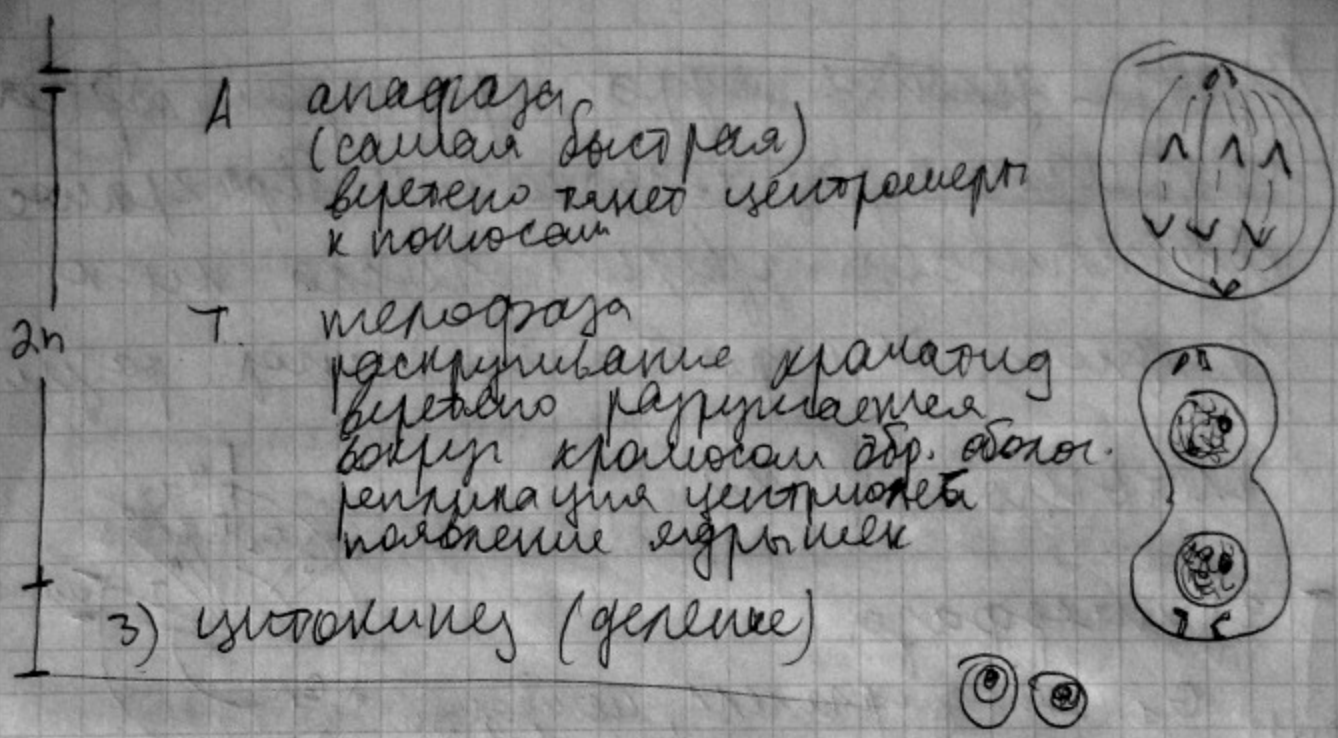 А анафаза
(самая быстрая)
веретено тянет центромеры
к полюсам
2n
Т. телофаза
раскручивание хроматид
веретено разрушается
вокруг хромосом обр. оболоч.
репликация центриолей
появление ядрышек
3) цитокинез (деление)